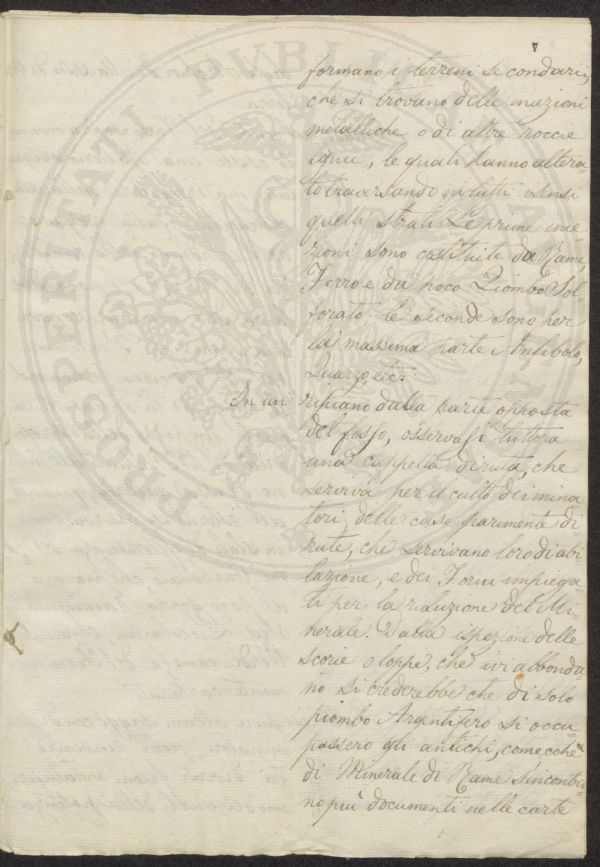 7
formano i terreni secondari,
che si trovano delle iniezioni
metalliche o di altre roccie
ignee, le quali hanno altera-
to traversando in tutti i sensi
quelli strati. Le prime inie-
zioni sono costituite da Rame,
Ferro e da poco Piombo Sol-
forato; le seconde sono per
la massima parte Anfibolo,
Quarzo etc:
In un ripiano dalla parte opposta
del fosso, osservasi tuttora
una cappella diruta, che
serviva per il culto dei mina-
tori, delle case parimente di-
rute, che servivano loro di abi-
tazione, e dei Forni impiega-
ti per la riduzione del Mi-
nerale. Dalla ispezione delle
scorie o loppe, che ivi abbonda-
no si crederebbe che di solo
piombo Argentifero si occu-
passero gli antichi, comecchè
di Minerale di Rame s'incontri-
no più documenti nelle carte
PROSPERITATI PUBLICAE